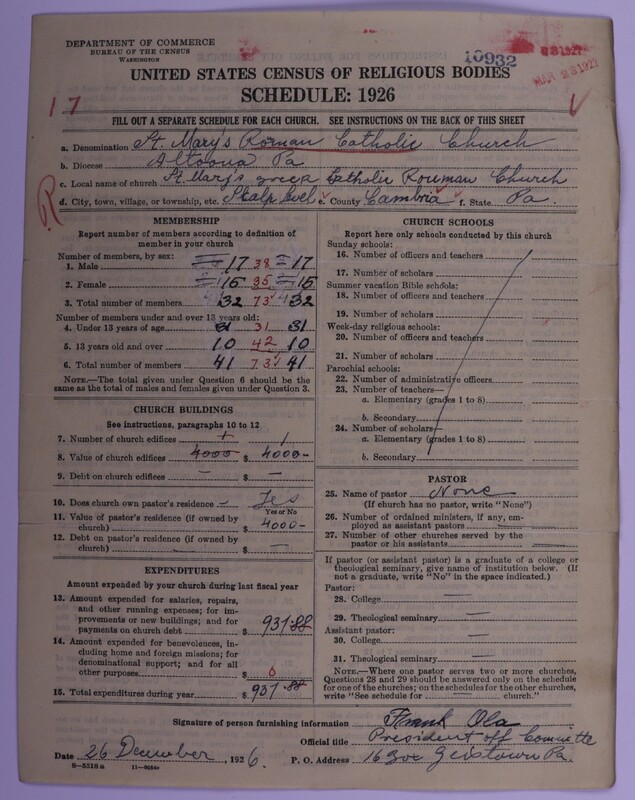 DEPARTMENT OF COMMERCE
BUREAU OF THE CENSUS
WASHINGTON
10932
MAR 23 1927
UNITED STATES CENSUS OF RELIGIOUS BODIES
SCHEDULE: 1926
17
FILL OUT A SEPARATE SCHEDULE FOR EACH CHURCH. SEE INSTRUCTIONS ON THE BACK OF THIS SHEET
a. Denomination St. Mary's Roman Catholic Church
b. Diocese Altoona Pa
c. Local name of church St. Mary's greek Catholic Rouman Church
d. City, town, village, or township, etc. Scalp Level e. County Cambria f. State Pa.
MEMBERSHIP
Report number of members according to definition of member in your church
Number of members, by sex:
1. Male 17 38 17
2. Female 15 35 15
3. Total number of members 32 73 32
Number of members under and over 13 years old:
4. Under 13 years of age 31 31 31
5. 13 years old and over 10 42 10
6. Total number of members 41 73 41
NOTE.—The total given under Question 6 should be the same as the total of males and females given under Question 3.
CHURCH BUILDINGS
See instructions, paragraphs 10 to 12
7. Number of church edifices 1 1
8. Value of church edifices 4000 $ 4000-
9. Debt on church edifices — $ —
10. Does church own pastor's residence – Yes
Yes or No
11. Value of pastor's residence (if owned by church) $ 4000-
12. Debt on pastor's residence (if owned by church) $ —
EXPENDITURES
Amount expended by your church during last fiscal year
13. Amount expended for salaries, repairs, and other running expenses; for improvements or new buildings; and for payments on church debt $ 937.88
14. Amount expended for benevolences, including home and foreign missions; for denominational support; and for all other purposes $ 0
15. Total expenditures during year $ 937.88
CHURCH SCHOOLS
Report here only schools conducted by this church
Sunday schools:
16. Number of officers and teachers
17. Number of scholars
Summer vacation Bible schools:
18. Number of officers and teachers
19. Number of scholars
Week-day religious schools:
20. Number of officers and teachers
21. Number of scholars
Parochial schools:
22. Number of administrative officers
23. Number of teachers—
a. Elementary (grades 1 to 8)
b. Secondary
24. Number of scholars—
a. Elementary (grades 1 to 8)
b. Secondary
PASTOR
25. Name of pastor None
(If church has no pastor, write "None")
26. Number of ordained ministers, if any, employed as assistant pastors —
27. Number of other churches served by the pastor or his assistants —
If pastor (or assistant pastor) is a graduate of a college or theological seminary, give name of institution below. (If not a graduate, write "No" in the space indicated.)
Pastor:
28. College —
29. Theological seminary —
Assistant pastor:
30. College —
31. Theological seminary —
NOTE.—Where one pastor serves two or more churches, Questions 28 and 29 should be answered only on the schedule for one of the churches; on the schedules for the other churches, write "See schedule for — church."
Signature of person furnishing information Frank Ola
Official title President off Committe
Date 26 December, 1926. P. O. Address Geistown Pa.
8—5318a 11—9054